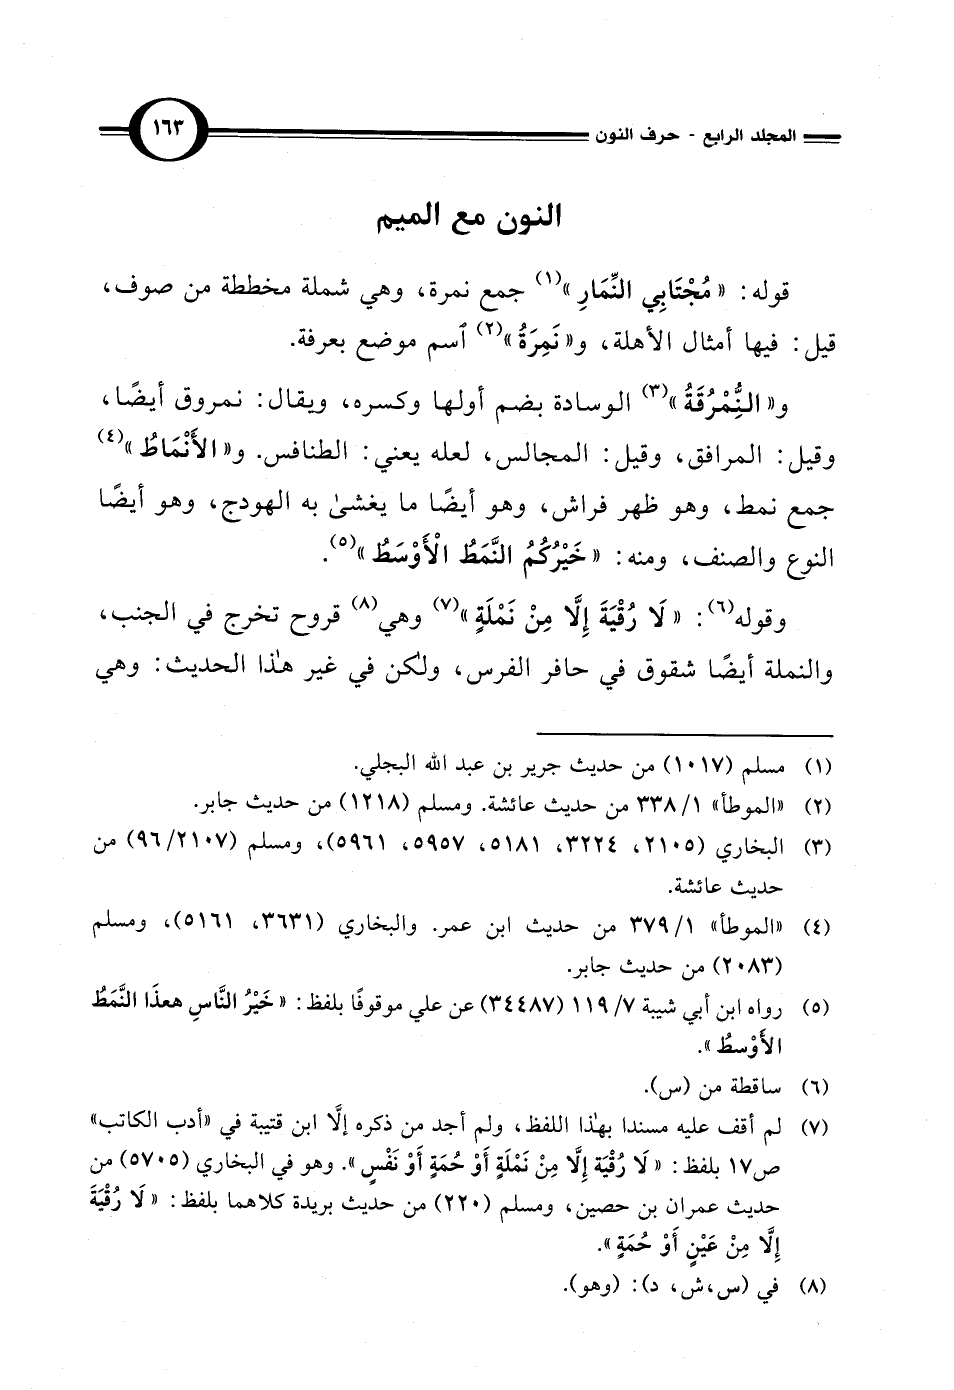 المجلد الرابع - حرف النون
١٦٣
النون مع الميم
قوله: «مُجْتَابِي النِّمَارِ»(١) جمع نمرة، وهي شملة مخططة من صوف،
قيل: فيها أمثال الأهلة، و«نَمِرَةُ»(٢) ٱسم موضع بعرفة.
و«النُِّمْرُقَةُ»(٣) الوسادة بضم أولها وكسره، ويقال: نمروق أيضًا،
وقيل: المرافق، وقيل: المجالس، لعله يعني: الطنافس. و«الأَنْمَاطُ»(٤)
جمع نمط، وهو ظهر فراش، وهو أيضًا ما يغشىٰ به الهودج، وهو أيضًا
النوع والصنف، ومنه: «خَيْرُكُمُ النَّمَطُ الْأَوْسَطُ»(٥).
وقوله(٦): «لَا رُقْيَةَ إِلَّا مِنْ نَمْلَةٍ»(٧) وهي(٨) قروح تخرج في الجنب،
والنملة أيضًا شقوق في حافر الفرس، ولكن في غير هٰذا الحديث: وهي
(١) مسلم (١٠١٧) من حديث جرير بن عبد الله البجلي.
(٢) «الموطأ» ١/ ٣٣٨ من حديث عائشة. ومسلم (١٢١٨) من حديث جابر.
(٣) البخاري (٢١٠٥، ٣٢٢٤، ٥١٨١، ٥٩٥٧، ٥٩٦١)، ومسلم (٩٦/٢١٠٧) من
حديث عائشة.
(٤) «الموطأ» ١/ ٣٧٩ من حديث ابن عمر. والبخاري (٣٦٣١، ٥١٦١)، ومسلم
(٢٠٨٣) من حديث جابر.
(٥) رواه ابن أبي شيبة ٧/ ١١٩ (٣٤٤٨٧) عن علي موقوفًا بلفظ: «خَيْرُ النَّاسِ هعذَا النَّمَطُ
الأَوْسطُ».
(٦) ساقطة من (س).
(٧) لم أقف عليه مسندا بهٰذا اللفظ، ولم أجد من ذكره إلَّا ابن قتيبة في «أدب الكاتب»
ص١٧ بلفظ: «لَا رُقْيَة إِلَّا مِنْ نَمْلَةٍ أَوْ حُمَةٍ أَوْ نَفْسٍ». وهو في البخاري (٥٧٠٥) من
حديث عمران بن حصين، ومسلم (٢٢٠) من حديث بريدة كلاهما بلفظ: «لَا رُقْيَةَ
إِلَّا مِنْ عَيْنٍ أَوْ حُمَةٍ».
(٨) في (س،ش، د): (وهو).